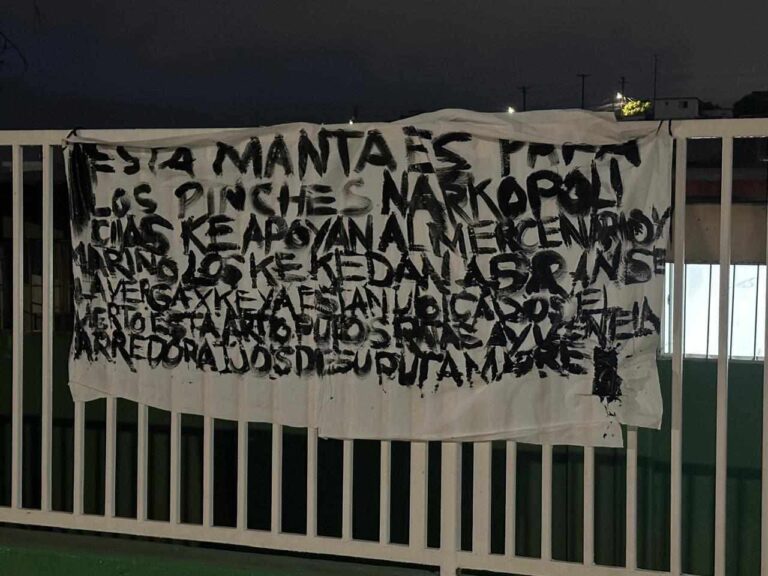 ESTA MANTA ES PARA
LOS PINCHES NARKOPOLI
CIAS KE APOYAN AL MERCENARIO Y
MARINO LOS KE KEDAN ABRANSE
LA VERGA X KE YA ESTAN UBICADOS EL
ESTA ARTO PUTOS RATAS
ARREDORA IJOS DE SU PUTA MADRE